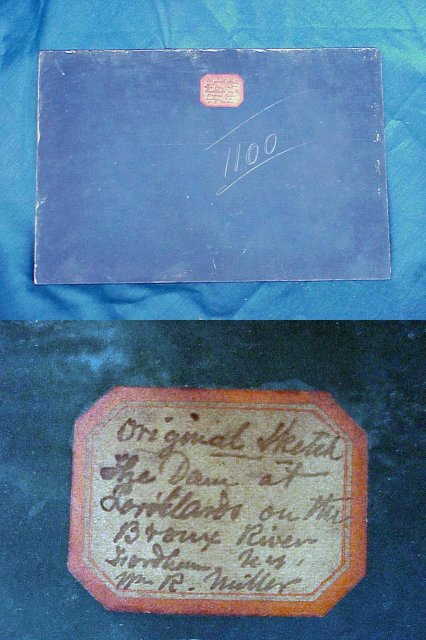 1100
Original Sketch
The Dam at
Lorillards on the
Bronx River
Fordham N.Y.
Wm R. Miller